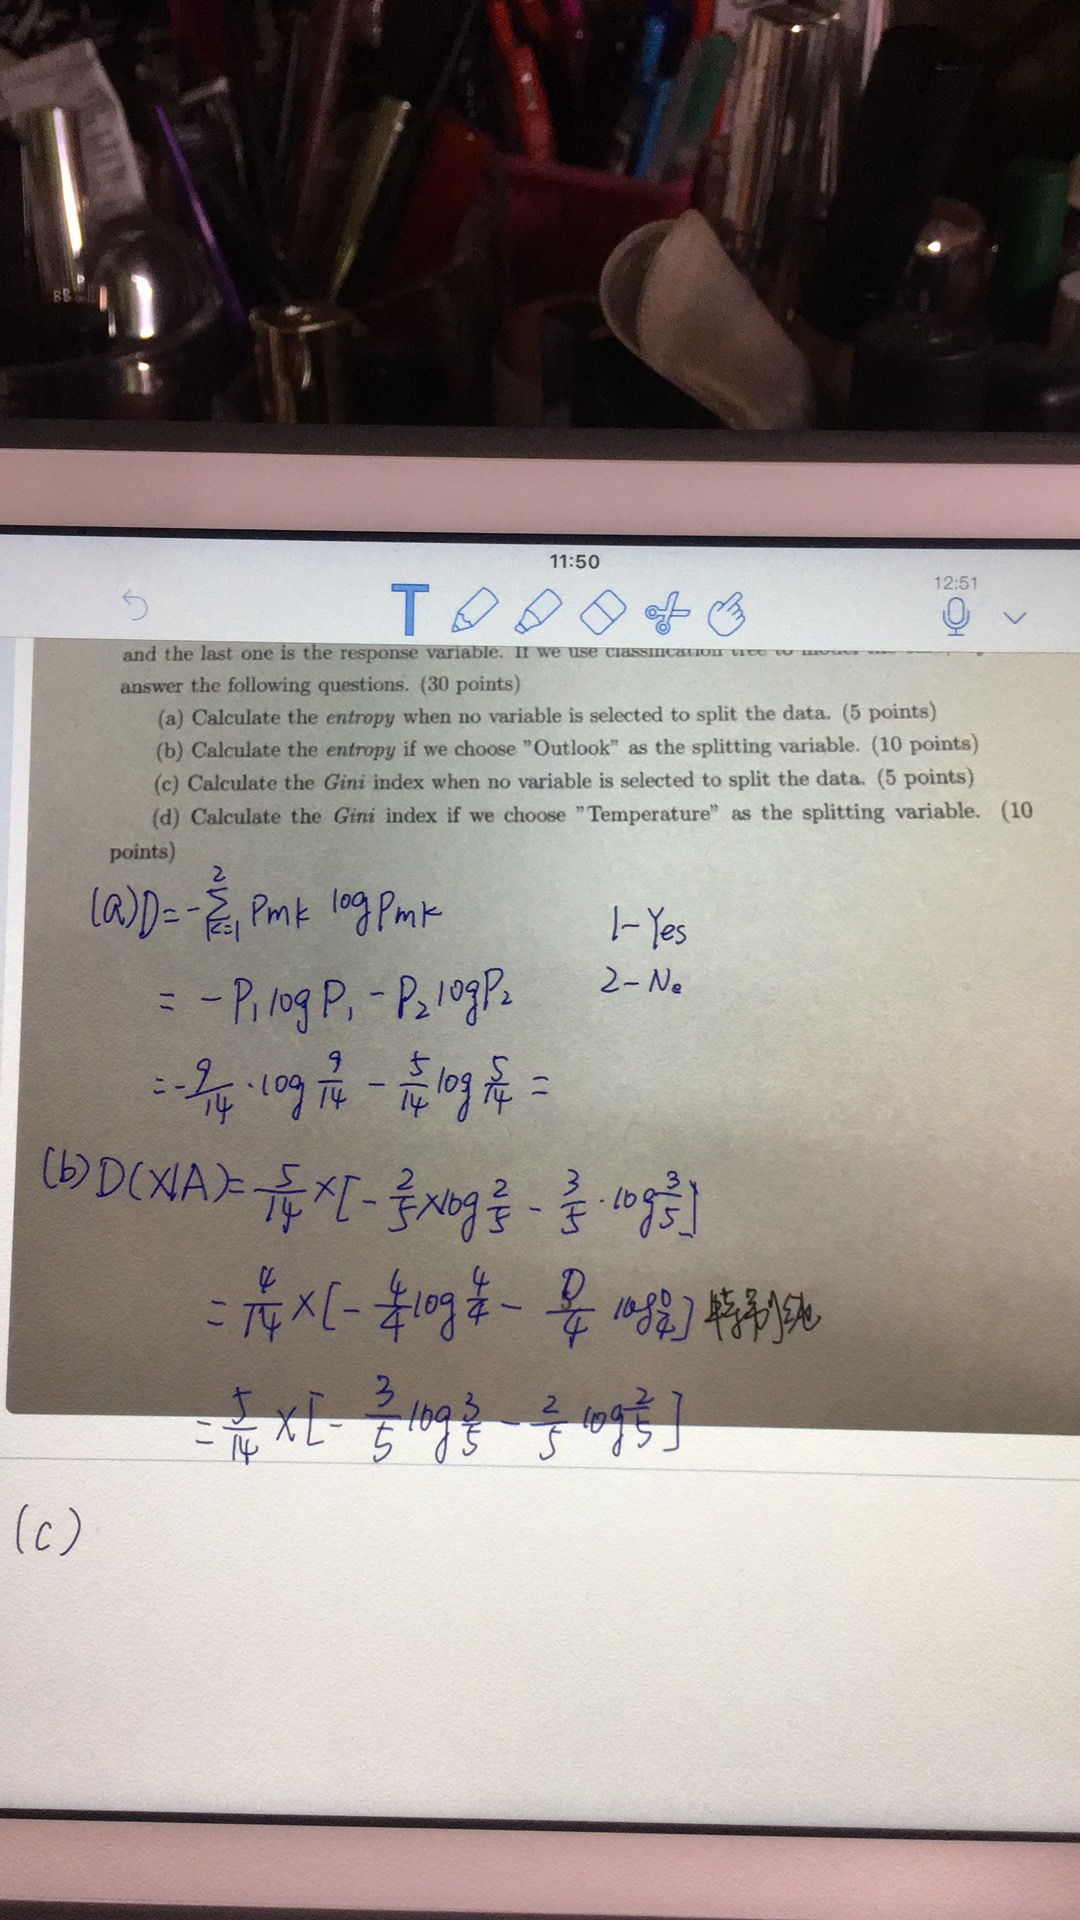 BB
11:50
12:51
T
and the last one is the response variable. If we use classification tree to model the
answer the following questions. (30 points)
(a) Calculate the entropy when no variable is selected to split the data. (5 points)
(b) Calculate the entropy if we choose "Outlook" as the splitting variable. (10 points)
(c) Calculate the Gini index when no variable is selected to split the data. (5 points)
(d) Calculate the Gini index if we choose "Temperature" as the splitting variable. (10
points)
(a) D = -∑_{k=1}^{2} Pmk log Pmk
1-Yes
= -P₁ log P₁ - P₂ log P₂
2-No
= -9/14 · log 9/14 - 5/14 log 5/14 =
(b) D(X|A) = 5/14 × [- 2/5 × log 2/5 - 3/5 · log 3/5]
= 4/14 × [- 4/4 log 4/4 - 0/4 log 0/4] 特别纯
= 5/14 × [- 3/5 log 3/5 - 2/5 log 2/5]
(c)